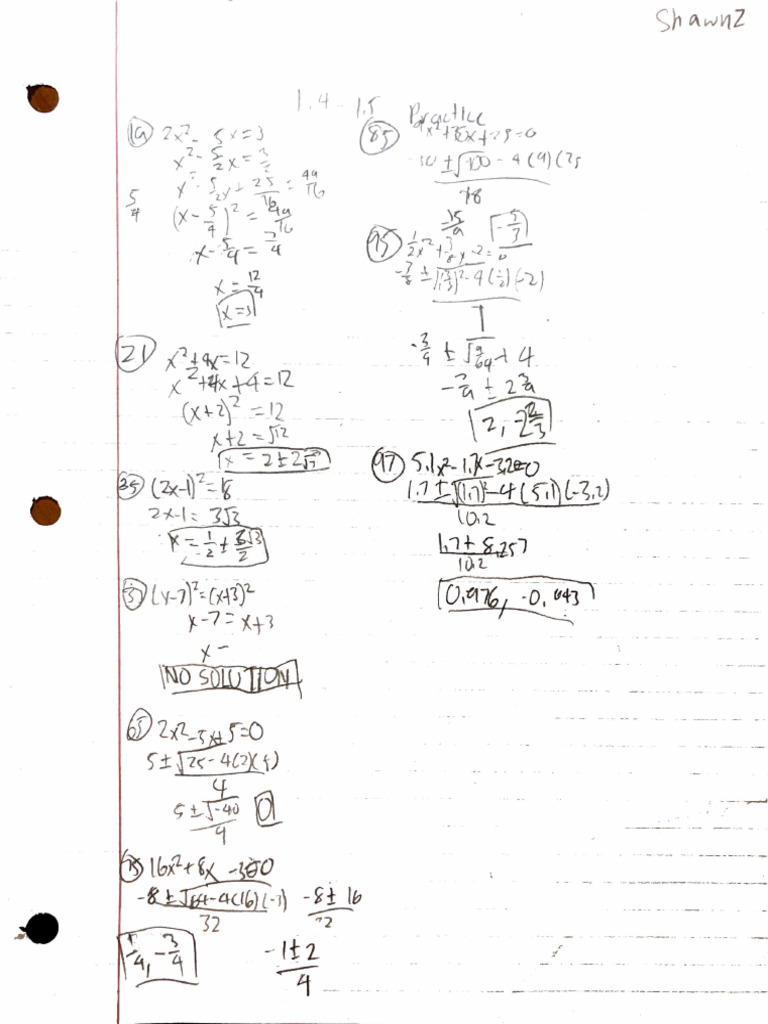 ShawnZ
1.4 - 1.5 Practice
19 2x² - 5x = 3
x² - 5/2x = 3/2
x² - 5/2x + 25/16 = 49/16
5/4
(x - 5/4)² = 49/16
x - 5/4 = 7/4
x = 12/4
x = 3
21 x² + 4x = 12
x² + 4x + 4 = 12
(x+2)² = 12
x+2 = √12
x = 2 ± 2√3
(2x-1)² = 18
2x-1 = 3√3
x = 1/2 ± 3√3/2
(x-7)² = (x+3)²
x-7 = x+3
x =
NO SOLUTION
65 2x² - 5x + 5 = 0
5 ± √25 - 4(2)(5)
4
5 ± √-40
4
0
16x² + 8x - 3 = 0
-8 ± √64 - 4(16)(-3)
32
-8 ± 16
32
-1 ± 2
4
1/4, -3/4
85
18
-5/3
95
1
2, -2 2/3
97 5.1x² - 1.7x - 3.2 = 0
1.7 ± √(1.7)² - 4(5.1)(-3.2)
10.2
1.7 ± 8.257
10.2
0.976, -0.643